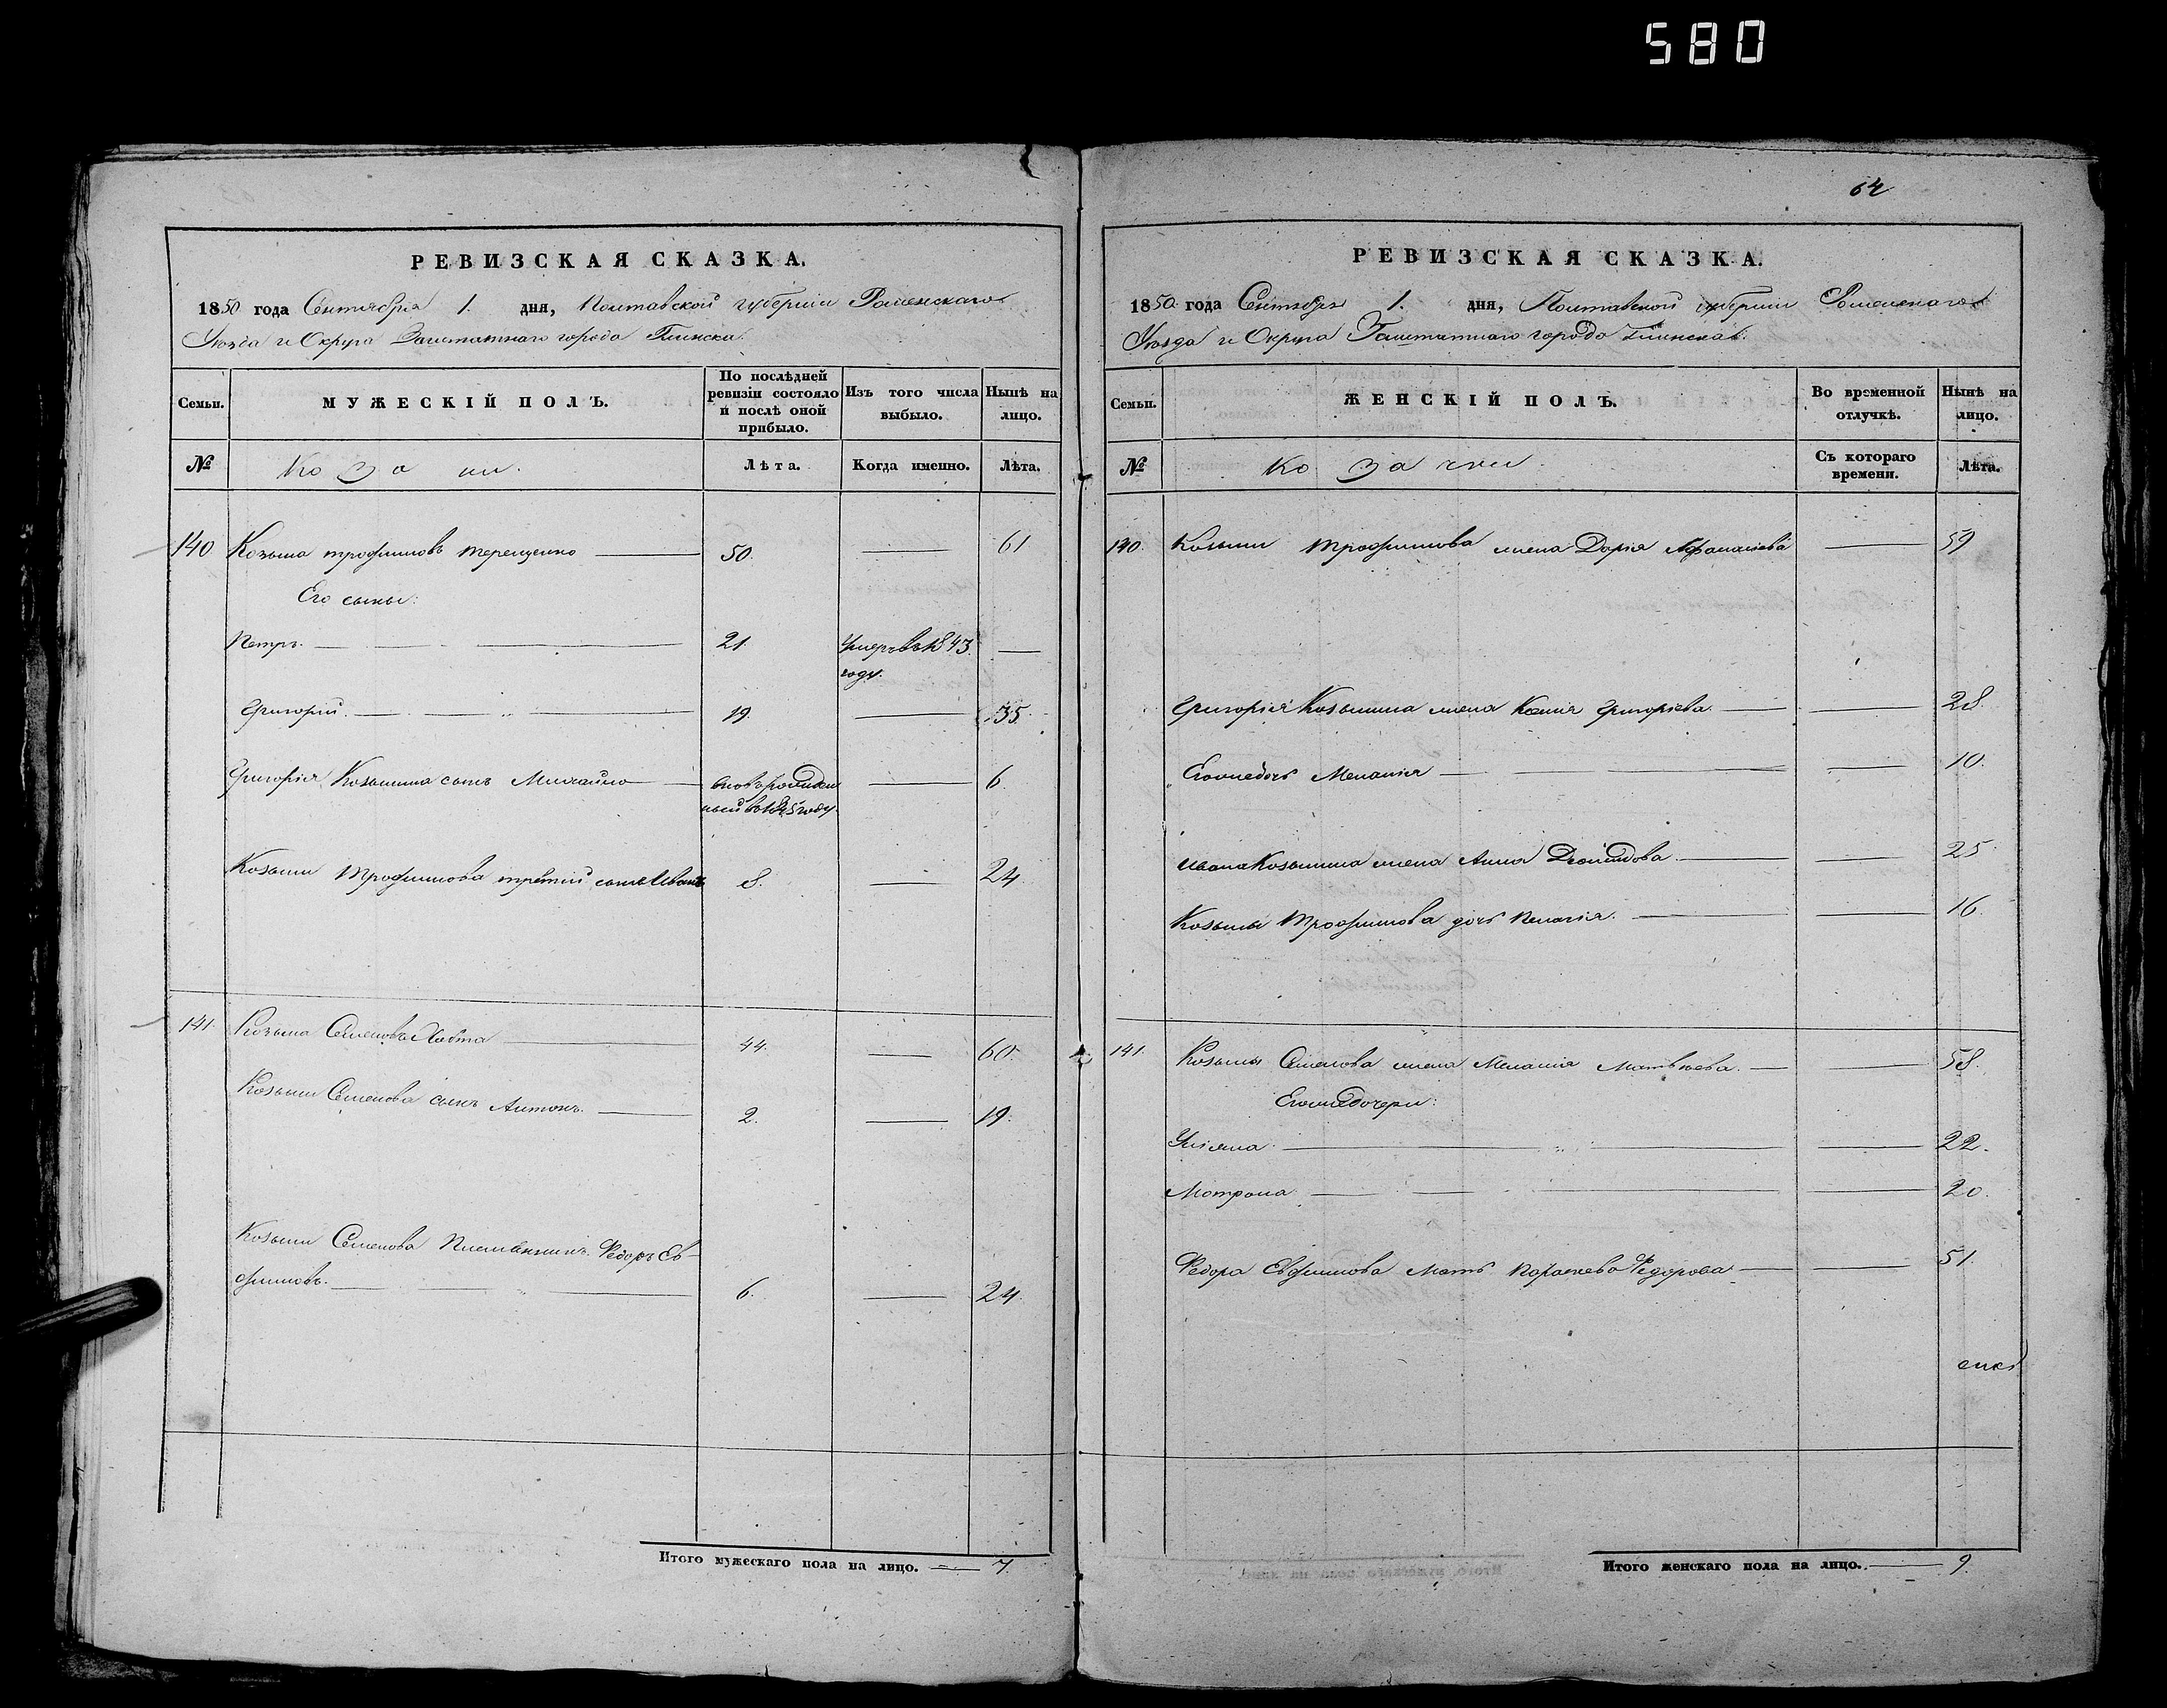 580
64
РЕВИЗСКАЯ СКАЗКА.
1850 года Сентября 1. дня, Полтавской губернии Роменскаго
Уезда и Округа Заштатнаго города Глинска.
Семьи.
МУЖЕСКІЙ ПОЛЪ.
По послѣдней ревизіи состояло и послѣ оной прибыло.
Изъ того числа выбыло.
Нынѣ на лицо.
№
Козаки.
Лѣта.
Когда именно.
Лѣта.
140 Козьма трофимовъ терещенко 50. — 61
Его сыны:
Петръ. 21. Умеръ въ 1843. —
году.
Григорій. 19. — 35.
Григорія Козьмина сынъ Михайло вновърожден — 6.
ный въ 1845 году.
Козьми Трофимова третий сынъ Иванъ 8. — 24
141. Козьма Семеновъ 44. — 60.
Козьми Семенова сынъ Антонъ. 2. — 19.
Козьми Семенова Племянникъ Федоръ Ев-
фимовъ. 6. — 24.
Итого мужескаго пола на лицо. — 7.
РЕВИЗСКАЯ СКАЗКА.
1850 года Сентября 1. дня, Полтавской губернии Роменскаго
Уезда и Округа Заштатнаго города Глинска.
Семьи.
ЖЕНСКІЙ ПОЛЪ.
Во временной отлучкѣ.
Нынѣ на лицо.
№
Козачки.
Съ котораго времени.
Лѣта.
140. Козьми трофимова жена Дарія Афанасіева — 59
Григорія Козьмина жена Ксенія Григоріева. — 28.
Егожедочь Меланія — 10.
Ивана Козьмина жена Анна Демидова. — 25.
Козьмы Трофимова дочь Пелагія. — 16.
141. Козьмы Семенова жена Меланія Матвѣева. — 58.
Егожедочери:
Уліяна — 22.
Мотрона — 20.
Федора Евфимова мать Параскева Федорова — 51.
Итого женскаго пола на лицо. — 9.